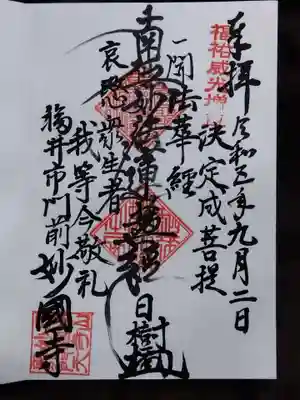 奉拝
令和五年九月二日
福祐威光増
決定成菩提
一聞法華経
南無妙法蓮華経
日樹
哀愍衆生者
我等今敬礼
福井市門前妙國寺